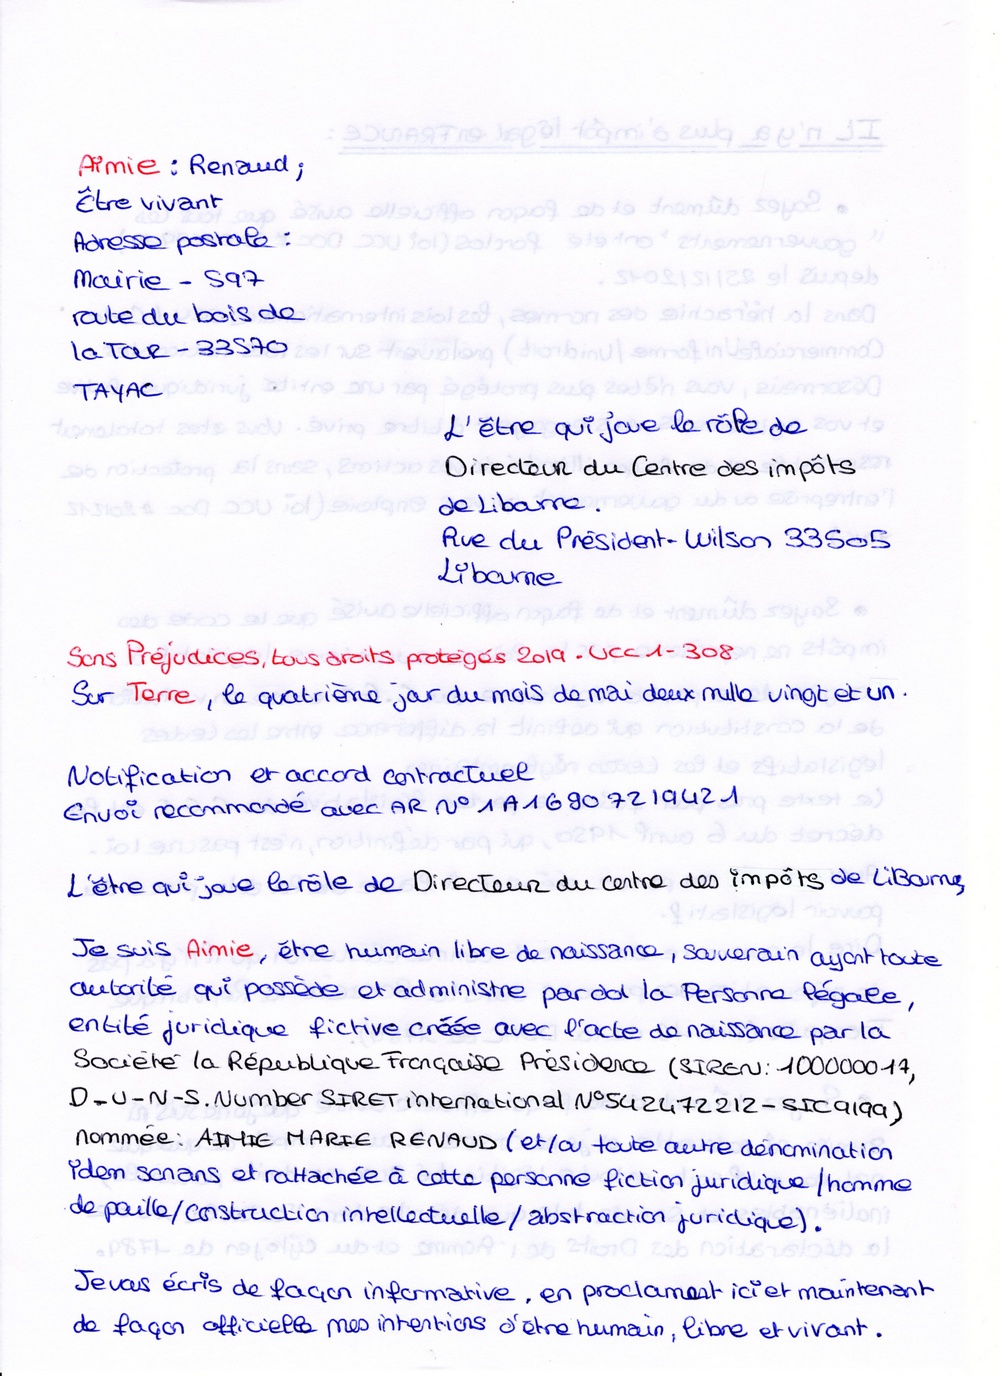 Aimie : Renaud ;
Être vivant
Adresse postale :
Mairie - 597
route du bois de
la Tour - 33570
TAYAC
L'être qui joue le rôle de
Directeur du Centre des impôts
de Libourne.
Rue du Président-Wilson 33505
Libourne
Sans Préjudices, tous droits protégés 2019. UCC 1-308
Sur Terre, le quatrième jour du mois de mai deux mille vingt et un.
Notification et accord contractuel
Envoi recommandé avec AR N° 1A 169 072 1942 1
L'être qui joue le rôle de Directeur du centre des impôts de LiBourne,
Je suis Aimie, être humain libre de naissance, souverain ayant toute
autorité qui possède et administre par dol la Personne légale,
entité juridique fictive créée avec l'acte de naissance par la
Société la République Française Présidence (SIREN: 100000017,
D-U-N-S. Number SIRET international N°542472212-SIC9199)
nommée: AIMIE MARIE RENAUD (et/ou toute autre dénomination
idem sonans et rattachée à cette personne fiction juridique/homme
de paille/construction intellectuelle/abstraction juridique).
Je vous écris de façon informative, en proclament ici et maintenant
de façon officielle mes intentions d'être humain, libre et vivant.